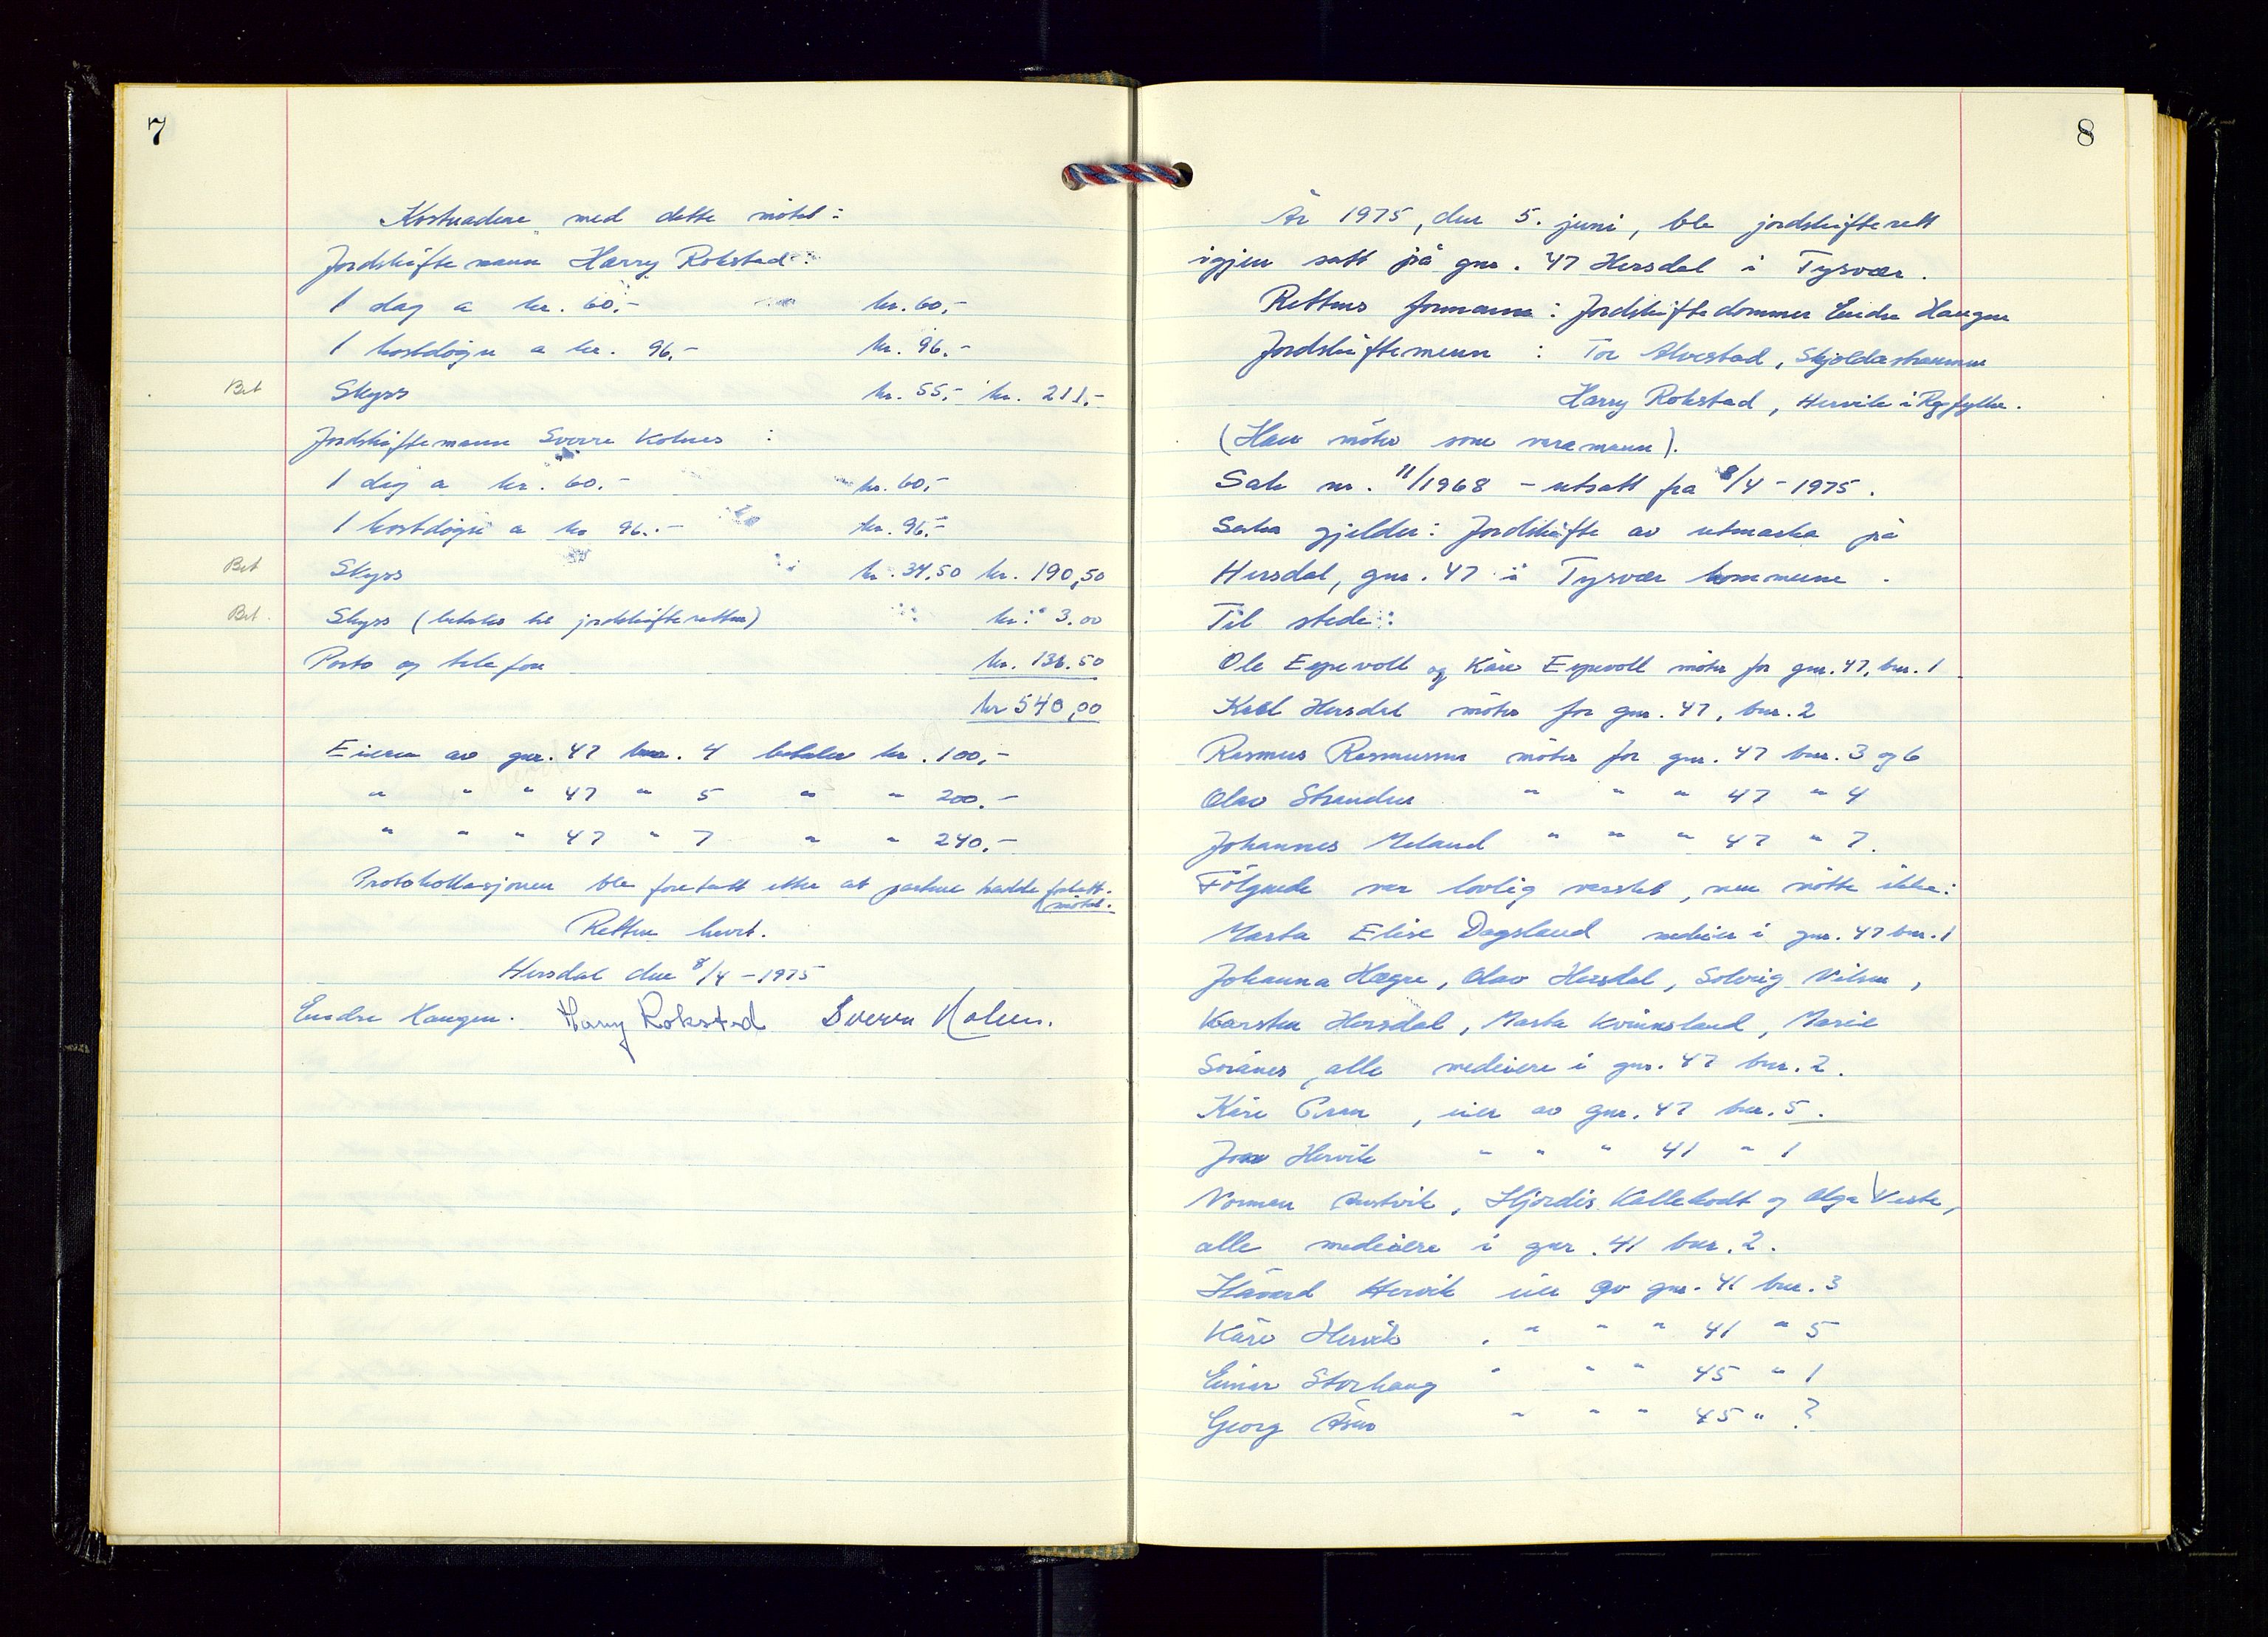 7
Kostnadene med dette møtet:
Jordskiftemann Harry Rokstad:
1 dag a kr. 60.- kr. 60,-
1 kostdøgn a kr. 96,- kr. 96.-
Bet Skyss kr. 55,- kr. 211,-
Jordskiftemann Sverre Kolnes :
1 dag a kr. 60.- kr. 60,-
1 kostdøgn a kr 96.- kr. 96,-
Bet Skyss kr. 34,50 kr. 190,50
Bet. Skyss (betales til jordskifteretten) kr. 3.00
Porto og telefon kr. 136.50
kr 540,00
Eieren av gnr. 47 bnr. 4 betaler kr. 100,-
" " " 47 " 5 " " 200.-
" " " 47 " 7 " " 240.-
Protokollasjonen ble foretatt etter at partene hadde forlatt
møtet.
Retten hevet.
Hersdal den 8/4 - 1975
Endre Haugen. Harry Rokstad Sverre Kolnes.
8
År 1975, den 5. juni, ble jordskifterett
igjen satt på gnr. 47 Hersdal i Tysvær.
Rettens formann: Jordskiftedommer Endre Haugen
Jordskiftemenn : Tor Alvestad, Skjoldastraumen
Harry Rokstad, Hervik i Ryfylke.
(Han møter som varamann).
Sak nr. 11/1968 - utsatt fra 8/4 - 1975.
Saka gjelder: Jordskifte av utmarka på
Hersdal, gnr. 47 i Tysvær kommune.
Til stede:
Ole Espevoll og Kåre Espevoll møter for gnr. 47, bnr. 1
Karl Hersdal møter for gnr. 47, bnr. 2
Rasmus Rasmussen møter for gnr. 47 bnr. 3 og 6
Olav Stranden " " " 47 " 4
Johannes Meland " " " 47 " 7.
Følgende var lovlig varslet, men møtte ikke:
Marta Elise Dagsland medeier i gnr. 47 bnr. 1
Johanna Hegre, Olav Hersdal, Solveig Nilsen,
Karsten Hersdal, Marta Kvinnsland, Marie
Svånes, alle medeiere i gnr. 47 bnr. 2.
Kåre , eier av gnr. 47 bnr. 5.
Jon Hervik " " " 41 " 1
Norman Austvik, Hjørdis Kallekodt og Olga Veste,
alle medeiere i gnr. 41 bnr. 2.
Håvard Hervik eier av gnr. 41 bnr. 3
Kåre Hervik " " " 41 " 5
Einar Storhaug " " " 45 " 1
Georg " " " 45 " ?